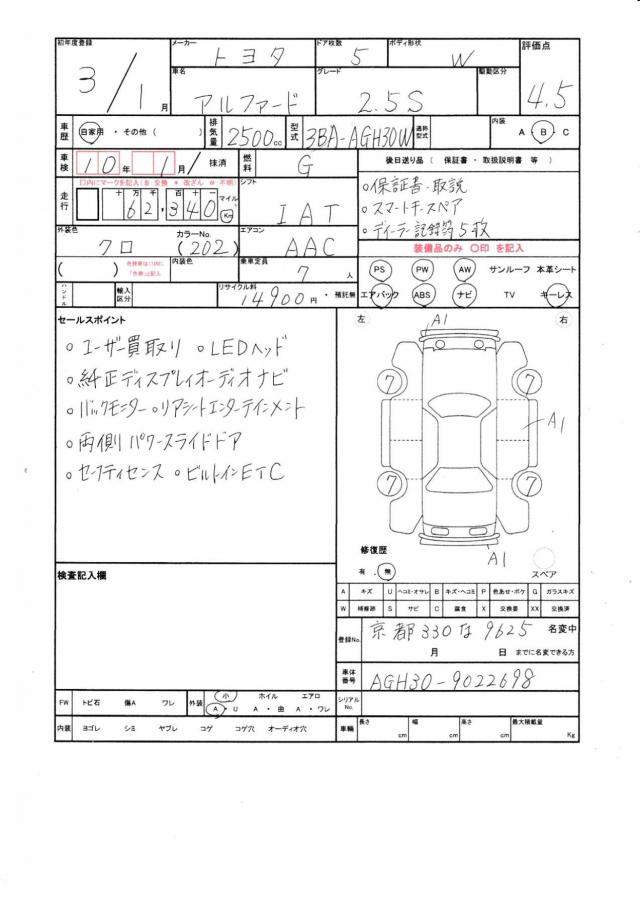 初年度登録 メーカー トヨタ ドア枚数 5 ボディ形状 W 評価点
3/1月 車名 アルファード グレード 2.5S 駆動区分 4.5
車歴 自家用 ・ その他 ( ) 排気量 2500cc 型式 3BA-AGH30W 通称型式 内装 A ・ B ・ C
車検 10年 1月/ 抹消 燃料 G 後日送り品 ( 保証書 ・ 取扱説明書 等 )
走行 十 万 千 百 十 一 マイル Km シフト
62,340 IAT
○保証書・取説
○スマートキースペア
○ディーラー記録簿5枚
外装色 クロ カラーNo. (202) エアコン AAC 装備品のみ 〇印 を記入
( ) 内装色 乗車定員 7人 PS PW AW サンルーフ 本革シート
ハンドル 輸入区分 リサイクル料 14900円 ・ 預託無 エアバック ABS ナビ TV キーレス
セールスポイント
○ユーザー買取り ○LEDヘッド
○純正ディスプレイオーディオナビ
○バックモニター○リアシートエンターテインメント
○両側パワースライドドア
○セーフティセンス ○ビルトインETC
左 A1 右
7 7
A1
7 7
A1
修復歴
有 . 無 スペア
検査記入欄
A キズ U ヘコミ・オサレ B キズ・ヘコミ P 色あせ・ボケ G ガラスキズ
W 補修跡 S サビ C 腐食 X 交換要 XX 交換済
登録No. 京都 330 な 9625 名変中
月 日 までに名変できる方
車体番号 AGH30-9022698
FW トビ石 傷A ワレ 外装 小 ホイル エアロ シリアルNo.
A ・ U A ・ 曲 A ・ ワレ
内装 ヨゴレ シミ ヤブレ コゲ コゲ穴 オーディオ穴 車輛 長さ cm 幅 cm 高さ cm 最大積載量 Kg